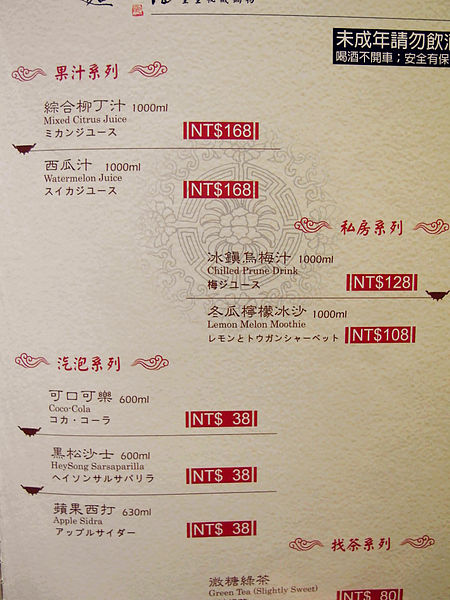 未成年請勿飲酒
喝酒不開車；安全有保
果汁系列
綜合柳丁汁 1000ml
Mixed Citrus Juice
ミカンジュース
NT$168
西瓜汁 1000ml
Watermelon Juice
スイカジュース
NT$168
私房系列
冰鎮烏梅汁 1000ml
Chilled Prune Drink
梅ジュース
NT$128
冬瓜檸檬冰沙 1000ml
Lemon Melon Moothie
レモンとトウガンシャーベット
NT$108
汽泡系列
可口可樂 600ml
Coco-Cola
コカ・コーラ
NT$ 38
黑松沙士 600ml
HeySong Sarsaparilla
ヘイソンサルサパリラ
NT$ 38
蘋果西打 630ml
Apple Sidra
アップルサイダー
NT$ 38
找茶系列
微糖綠茶
Green Tea (Slightly Sweet)
NT$ 80